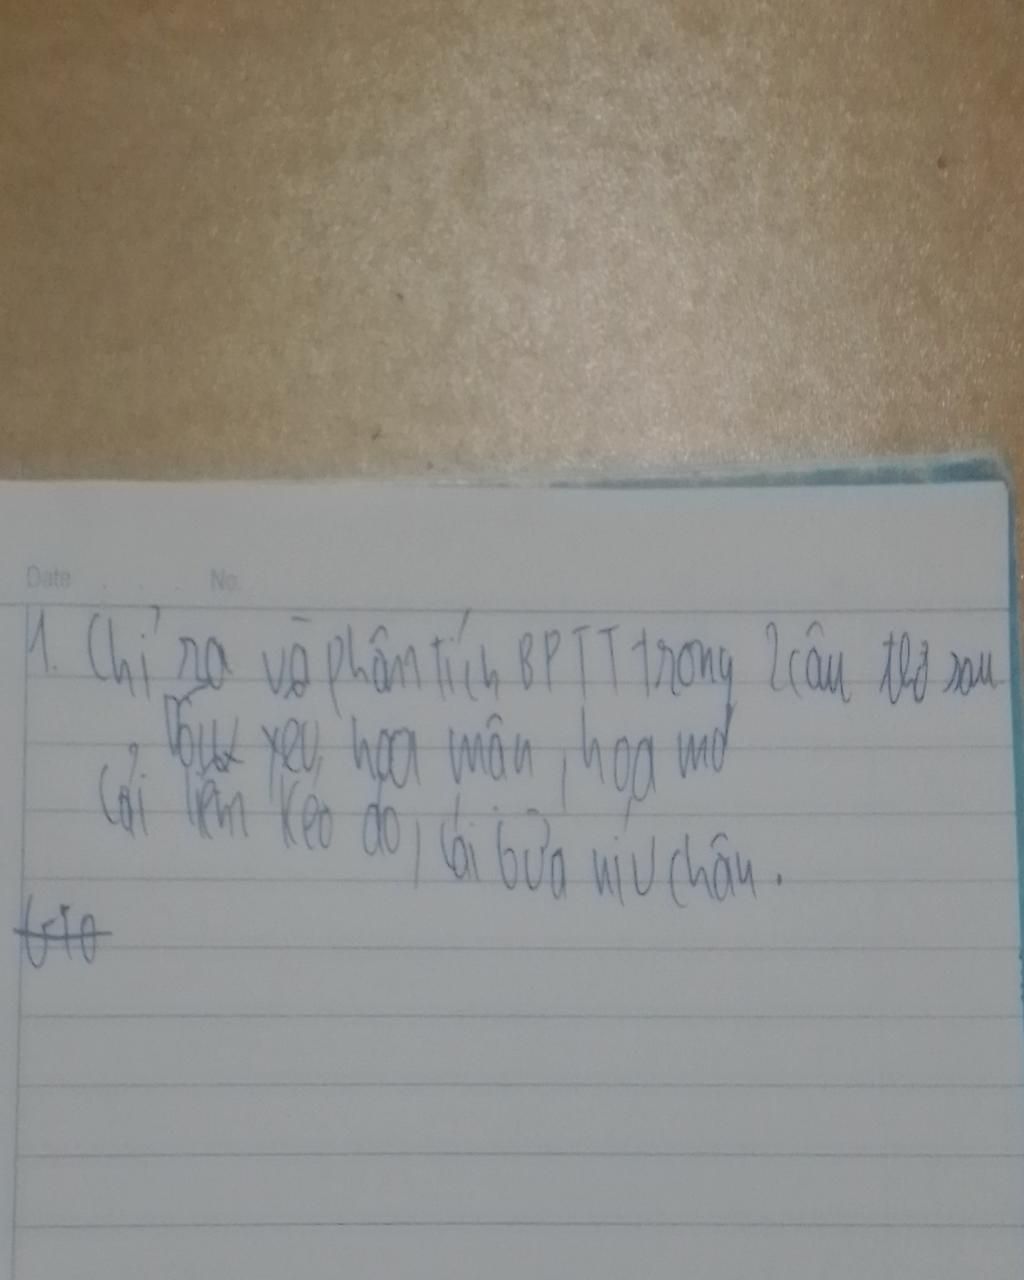 Date . . . No.
1. Chỉ ra và phân tích BPTT trong 2 câu thơ sau
xeo, hoa mân, hoa mơ
Cỏi liềm kéo áo, cái bừa níu chân.